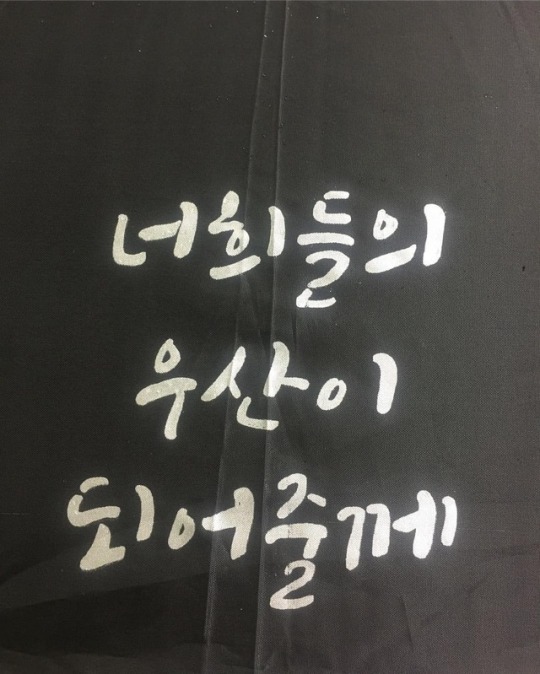 너희들의
우산이
되어줄께